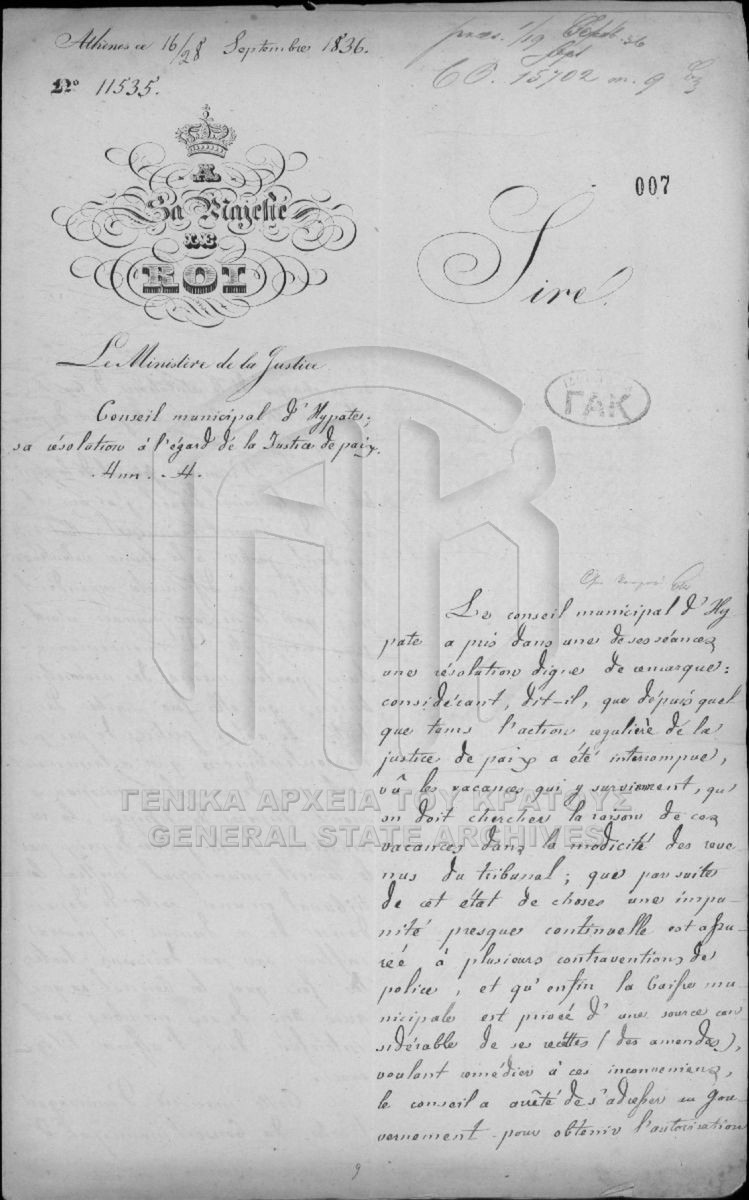 Athènes ce 16/28 Septembre 1836.
Nº 11535.
praes. 1/19 Sept 36
CO. 15702 m. 9
A
Sa Majesté
LE
ROI
007
Sire.
Le Ministère de la Justice
ΓΑΚ
Conseil municipal d'Hypate;
sa résolution à l'égard dé la Justice de paix.
Ann. A.
Le conseil municipal d'Hy
pate a pris dans une de ses séances
une résolution digne de remarque:
considérant, dit-il, que dépuis quel
que tems l'action regulière de la
justice de paix a été interrompue,
vû les vacances qui y surviennent, qu'
on doit chercher la raison de ces
vacances dans la modicité des reve
nus du tribunal; que par suite
de cet état de choses une impu-
nité presque continuelle est assu-
reé à plusieurs contraventions de
police, et qu'enfin la Caisse mu-
nicipale est privée d'une source con
sidérable de ses recettes (des amendes),
voulant remédier à ces inconveniens,
le conseil a arrêté de s'adresser au gou-
vernement pour obtenir l'autorisation
ΓΕΝΙΚΑ ΑΡΧΕΙΑ ΤΟΥ ΚΡΑΤΟΥΣ
GENERAL STATE ARCHIVES
9